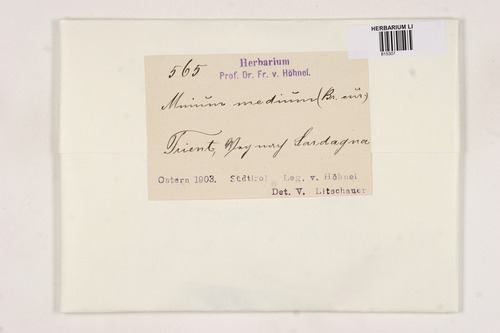 HERBARIUM LI
565
Herbarium
Prof. Dr. Fr. v. Höhnel.
Mnium medium (Br. eur.)
Trient, Weg nach Sardagna
Ostern 1903. Südtirol Leg. v. Höhnel
Det. V. Litschauer